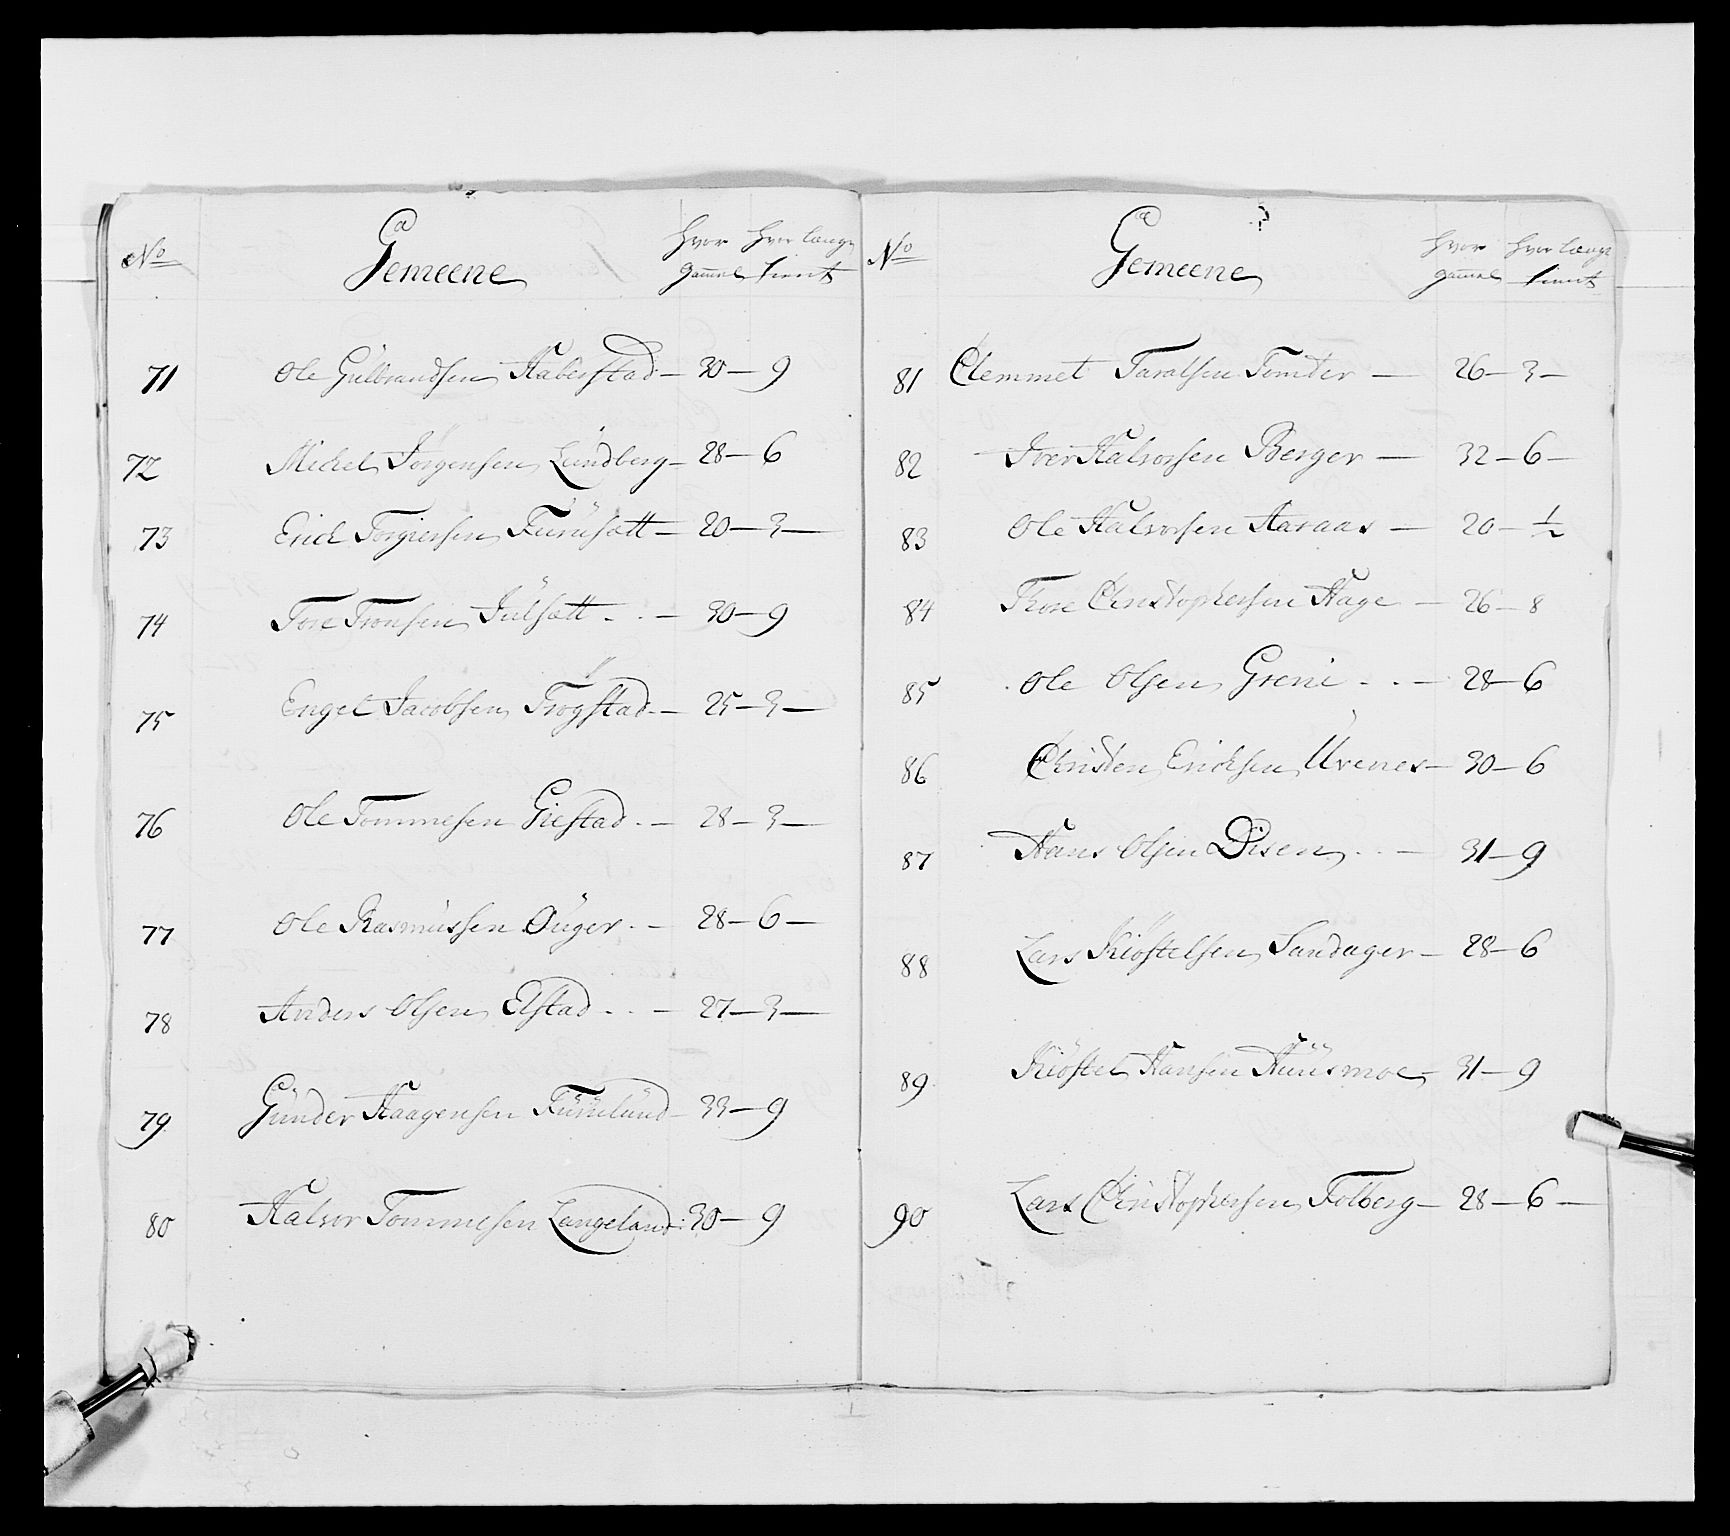 No Gemeene hvor gammel hvor længe tient
71 Ole Gulbrandsen Haberstad — 30 — 9
72 Michel Jörgensen Lundberg — 28 — 6
73 Erich Torgiersen Furusætt — 20 — 3 —
74 Tore Tronsen Julsætt - . — 30 — 9
75 Engel Jacobsen Trögstad — 25 — 3 —
76 Ole Tommesen Giestad . — 28 — 3 —
77 Ole Rasmussen Öuger . — 28 — 6 —
78 Anders Olsen Elstad . . — 27 — 3 —
79 Gunder Haagensen Furulund — 33 — 9
80 Halvor Tommesen Langeland : 30 — 9
No Gemeene hvor gammel hvor længe tient
81 Clemmet Taralsen Tomter — 26 — 3 —
82 Iver Halvorsen Berger — 32 — 6 —
83 Ole Halvorsen Aaraas — 20 — ½
84 Thore Christophersen Hage — 26 — 8
85 Ole Olsen Greni - . — 28 — 6
86 Christen Erichsen Urenes — 30 — 6
87 Hans Olsen Disen . . — 31 — 9
88 Lars Kiöstelsen Sandager — 28 — 6
89 Kiöstel Hansen Huusmoe — 31 — 9
90 Lars Christophersen Folberg — 28 — 6 —